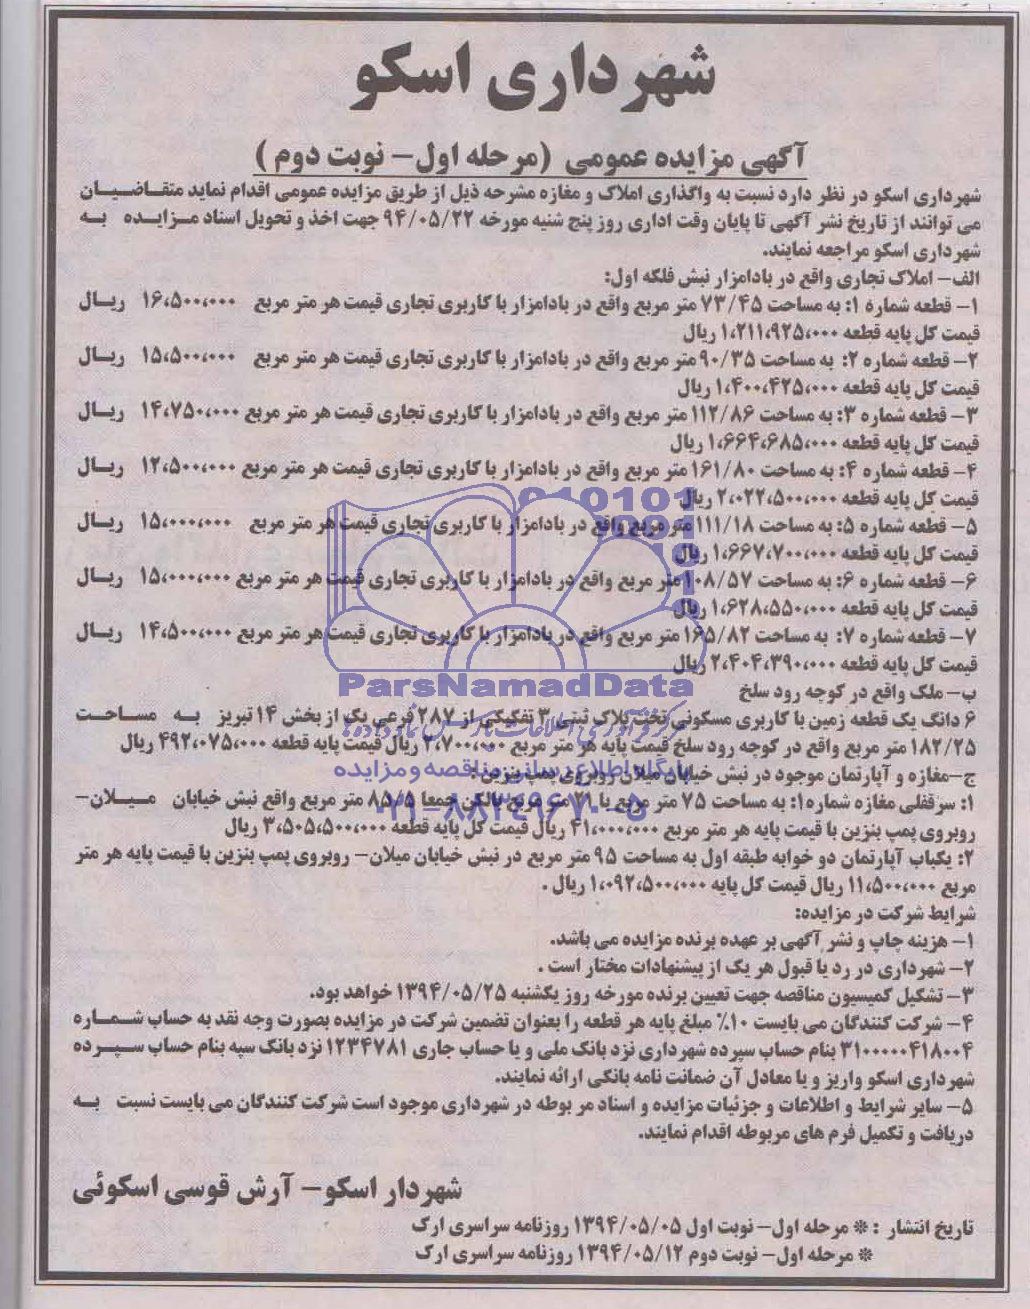 شهرداری اسکو
آگهی مزایده عمومی (مرحله اول- نوبت دوم )
شهرداری اسکو در نظر دارد نسبت به واگذاری املاک و مغازه مشرحه ذیل از طریق مزایده عمومی اقدام نماید متقاضیان
می توانند از تاریخ نشر آگهی تا پایان وقت اداری روز پنج شنبه مورخه ۹۴/۰۵/۲۲ جهت اخذ و تحویل اسناد مزایده به
شهرداری اسکو مراجعه نمایند.
الف- املاک تجاری واقع در بادامزار نبش فلکه اول:
۱- قطعه شماره ۱: به مساحت ۷۳/۴۵ متر مربع واقع در بادامزار با کاربری تجاری قیمت هر متر مربع ۱۶،۵۰۰،۰۰۰ ریال
قیمت کل پایه قطعه ۱،۲۱۱،۹۲۵،۰۰۰ ریال
۲- قطعه شماره ۲: به مساحت ۹۰/۳۵ متر مربع واقع در بادامزار با کاربری تجاری قیمت هر متر مربع ۱۵،۵۰۰،۰۰۰ ریال
قیمت کل پایه قطعه ۱،۴۰۰،۴۲۵،۰۰۰ ریال
۳- قطعه شماره ۳: به مساحت ۱۱۲/۸۶ متر مربع واقع در بادامزار با کاربری تجاری قیمت هر متر مربع ۱۴،۷۵۰،۰۰۰ ریال
قیمت کل پایه قطعه ۱،۶۶۴،۶۸۵،۰۰۰ ریال
۴- قطعه شماره ۴: به مساحت ۱۶۱/۸۰ متر مربع واقع در بادامزار با کاربری تجاری قیمت هر متر مربع ۱۲،۵۰۰،۰۰۰ ریال
قیمت کل پایه قطعه ۲،۰۲۲،۵۰۰،۰۰۰ ریال
۵- قطعه شماره ۵: به مساحت ۱۱۱/۱۸ متر مربع واقع در بادامزار با کاربری تجاری قیمت هر متر مربع ۱۵،۰۰۰،۰۰۰ ریال
قیمت کل پایه قطعه ۱،۶۶۷،۷۰۰،۰۰۰ ریال
۶- قطعه شماره ۶: به مساحت ۱۰۸/۵۷ متر مربع واقع در بادامزار با کاربری تجاری قیمت هر متر مربع ۱۵،۰۰۰،۰۰۰ ریال
قیمت کل پایه قطعه ۱،۶۲۸،۵۵۰،۰۰۰ ریال
۷- قطعه شماره ۷: به مساحت ۱۶۵/۸۲ متر مربع واقع در بادامزار با کاربری تجاری قیمت هر متر مربع ۱۴،۵۰۰،۰۰۰ ریال
قیمت کل پایه قطعه ۲،۴۰۴،۳۹۰،۰۰۰ ریال
ParsNamadData
ب- ملک واقع در کوچه رود سلخ
۶ دانگ یک قطعه زمین با کاربری مسکونی تحت پلاک ثبتی ۳ تفکیکی از ۲۸۷ فرعی یک از بخش ۱۴ تبریز به مساحت
۱۸۲/۲۵ متر مربع واقع در کوچه رود سلخ قیمت پایه هر متر مربع ۲،۷۰۰،۰۰۰ ریال قیمت پایه قطعه ۴۹۲،۰۷۵،۰۰۰ ریال
پایگاه اطلاع رسانی مناقصه و مزایده
ج- مغازه و آپارتمان موجود در نبش خیابان میلان روبروی پمپ بنزین :
۱: سرقفلی مغازه شماره ۱: به مساحت ۷۵ متر مربع با ۲۱ متر مربع بالکن جمعا ۸۵/۵ متر مربع واقع نبش خیابان میلان-
۰۲۱-۸۸۳۴۹۶۷۰-۵
روبروی پمپ بنزین با قیمت پایه هر متر مربع ۴۱،۰۰۰،۰۰۰ ریال قیمت کل پایه قطعه ۳،۵۰۵،۵۰۰،۰۰۰ ریال
۲: یکباب آپارتمان دو خوابه طبقه اول به مساحت ۹۵ متر مربع در نبش خیابان میلان- روبروی پمپ بنزین با قیمت پایه هر متر
مربع ۱۱،۵۰۰،۰۰۰ ریال قیمت کل پایه ۱،۰۹۲،۵۰۰،۰۰۰ ریال .
شرایط شرکت در مزایده:
۱- هزینه چاپ و نشر آگهی بر عهده برنده مزایده می باشد.
۲- شهرداری در رد یا قبول هر یک از پیشنهادات مختار است .
۳- تشکیل کمیسیون مناقصه جهت تعیین برنده مورخه روز یکشنبه ۱۳۹۴/۰۵/۲۵ خواهد بود.
۴- شرکت کنندگان می بایست ۱۰٪ مبلغ پایه هر قطعه را بعنوان تضمین شرکت در مزایده بصورت وجه نقد به حساب شماره
۳۱۰۰۰۰۰۴۱۸۰۰۴ بنام حساب سپرده شهرداری نزد بانک ملی و یا حساب جاری ۱۲۳۴۷۸۱ نزد بانک سپه بنام حساب سپرده
شهرداری اسکو واریز و یا معادل آن ضمانت نامه بانکی ارائه نمایند.
۵- سایر شرایط و اطلاعات و جزئیات مزایده و اسناد مربوطه در شهرداری موجود است شرکت کنندگان می بایست نسبت به
دریافت و تکمیل فرم های مربوطه اقدام نمایند.
شهردار اسکو- آرش قوسی اسکوئی
تاریخ انتشار : * مرحله اول- نوبت اول ۱۳۹۴/۰۵/۰۵ روزنامه سراسری ارک
* مرحله اول- نوبت دوم ۱۳۹۴/۰۵/۱۲ روزنامه سراسری ارک